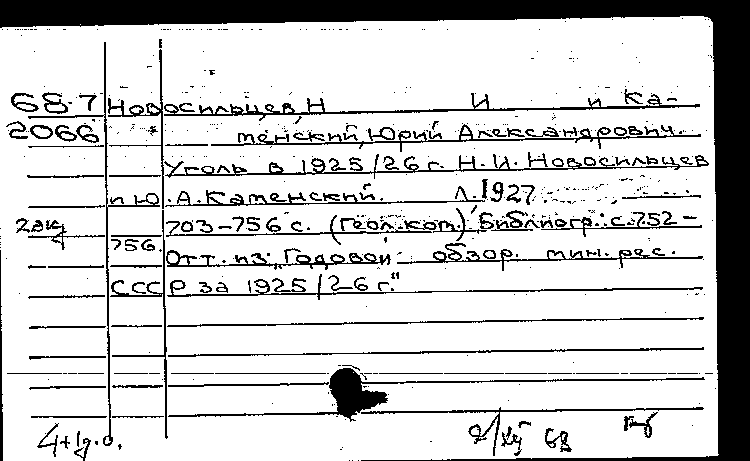 68-7 Новосильцев, Н И и Ка-
2066 менский, Юрий Александрович.
Уголь в 1925/26 г. Н. И. Новосильцев
и Ю. А. Каменский. Л. 1927
2экз 703-756 с. (Геол. ком.) Библиогр.: с. 752-
756.
Отт. из: „Годовой обзор. мин. рес.
СССР за 1925/26 г."
68